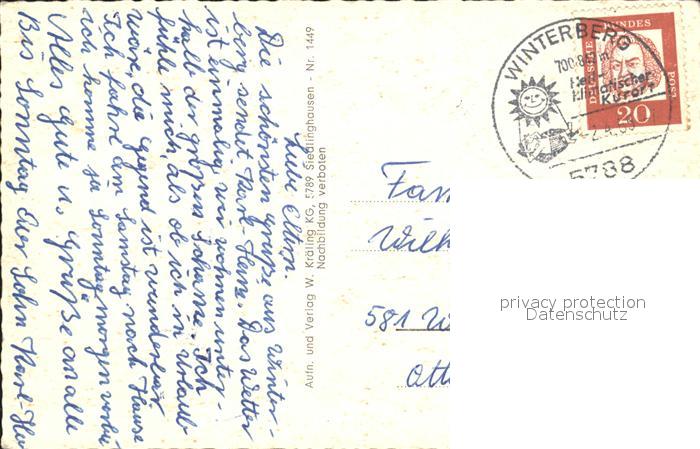 Liebe Eltern.
Die schönsten Grüße aus Winter-
berg sendet Karl-Heinz. Das Wetter
ist einmalig, wir wohnen unter-
halb der großen Schanze. Ich
fühle mich, als ob ich in Urlaub
wär, die Gegend ist wunderbar
Ich fahre am Samstag nach Hause
ich komme so Sonntagmorgen vorbei
Alles Gute u. Grüße an alle
Bis Sonntag Euer Sohn Karl-Hei
Aufn. und Verlag W. Kräling KG, 5789 Siedlinghausen - Nr. 1449
Nachbildung verboten
WINTERBERG
700-842 m
Heil
klimatischer
Kurort
5788
DEUTSCHE BUNDES POST
20
Fam
Wilh
581 W
Ott
privacy protection
Datenschutz